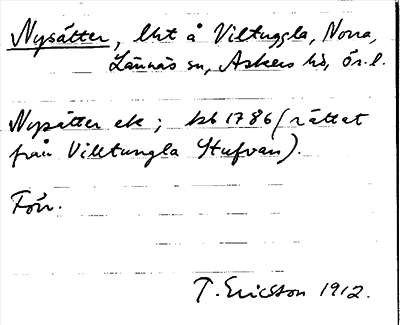 Nysätter, lht å Viltuggla, Norra,
Lännäs sn, Askers hd, Ör. l.
Nysätter ek; kb 1786 (rättat
från Villtungla Stufvan).
Förr.
T. Ericsson 1912.